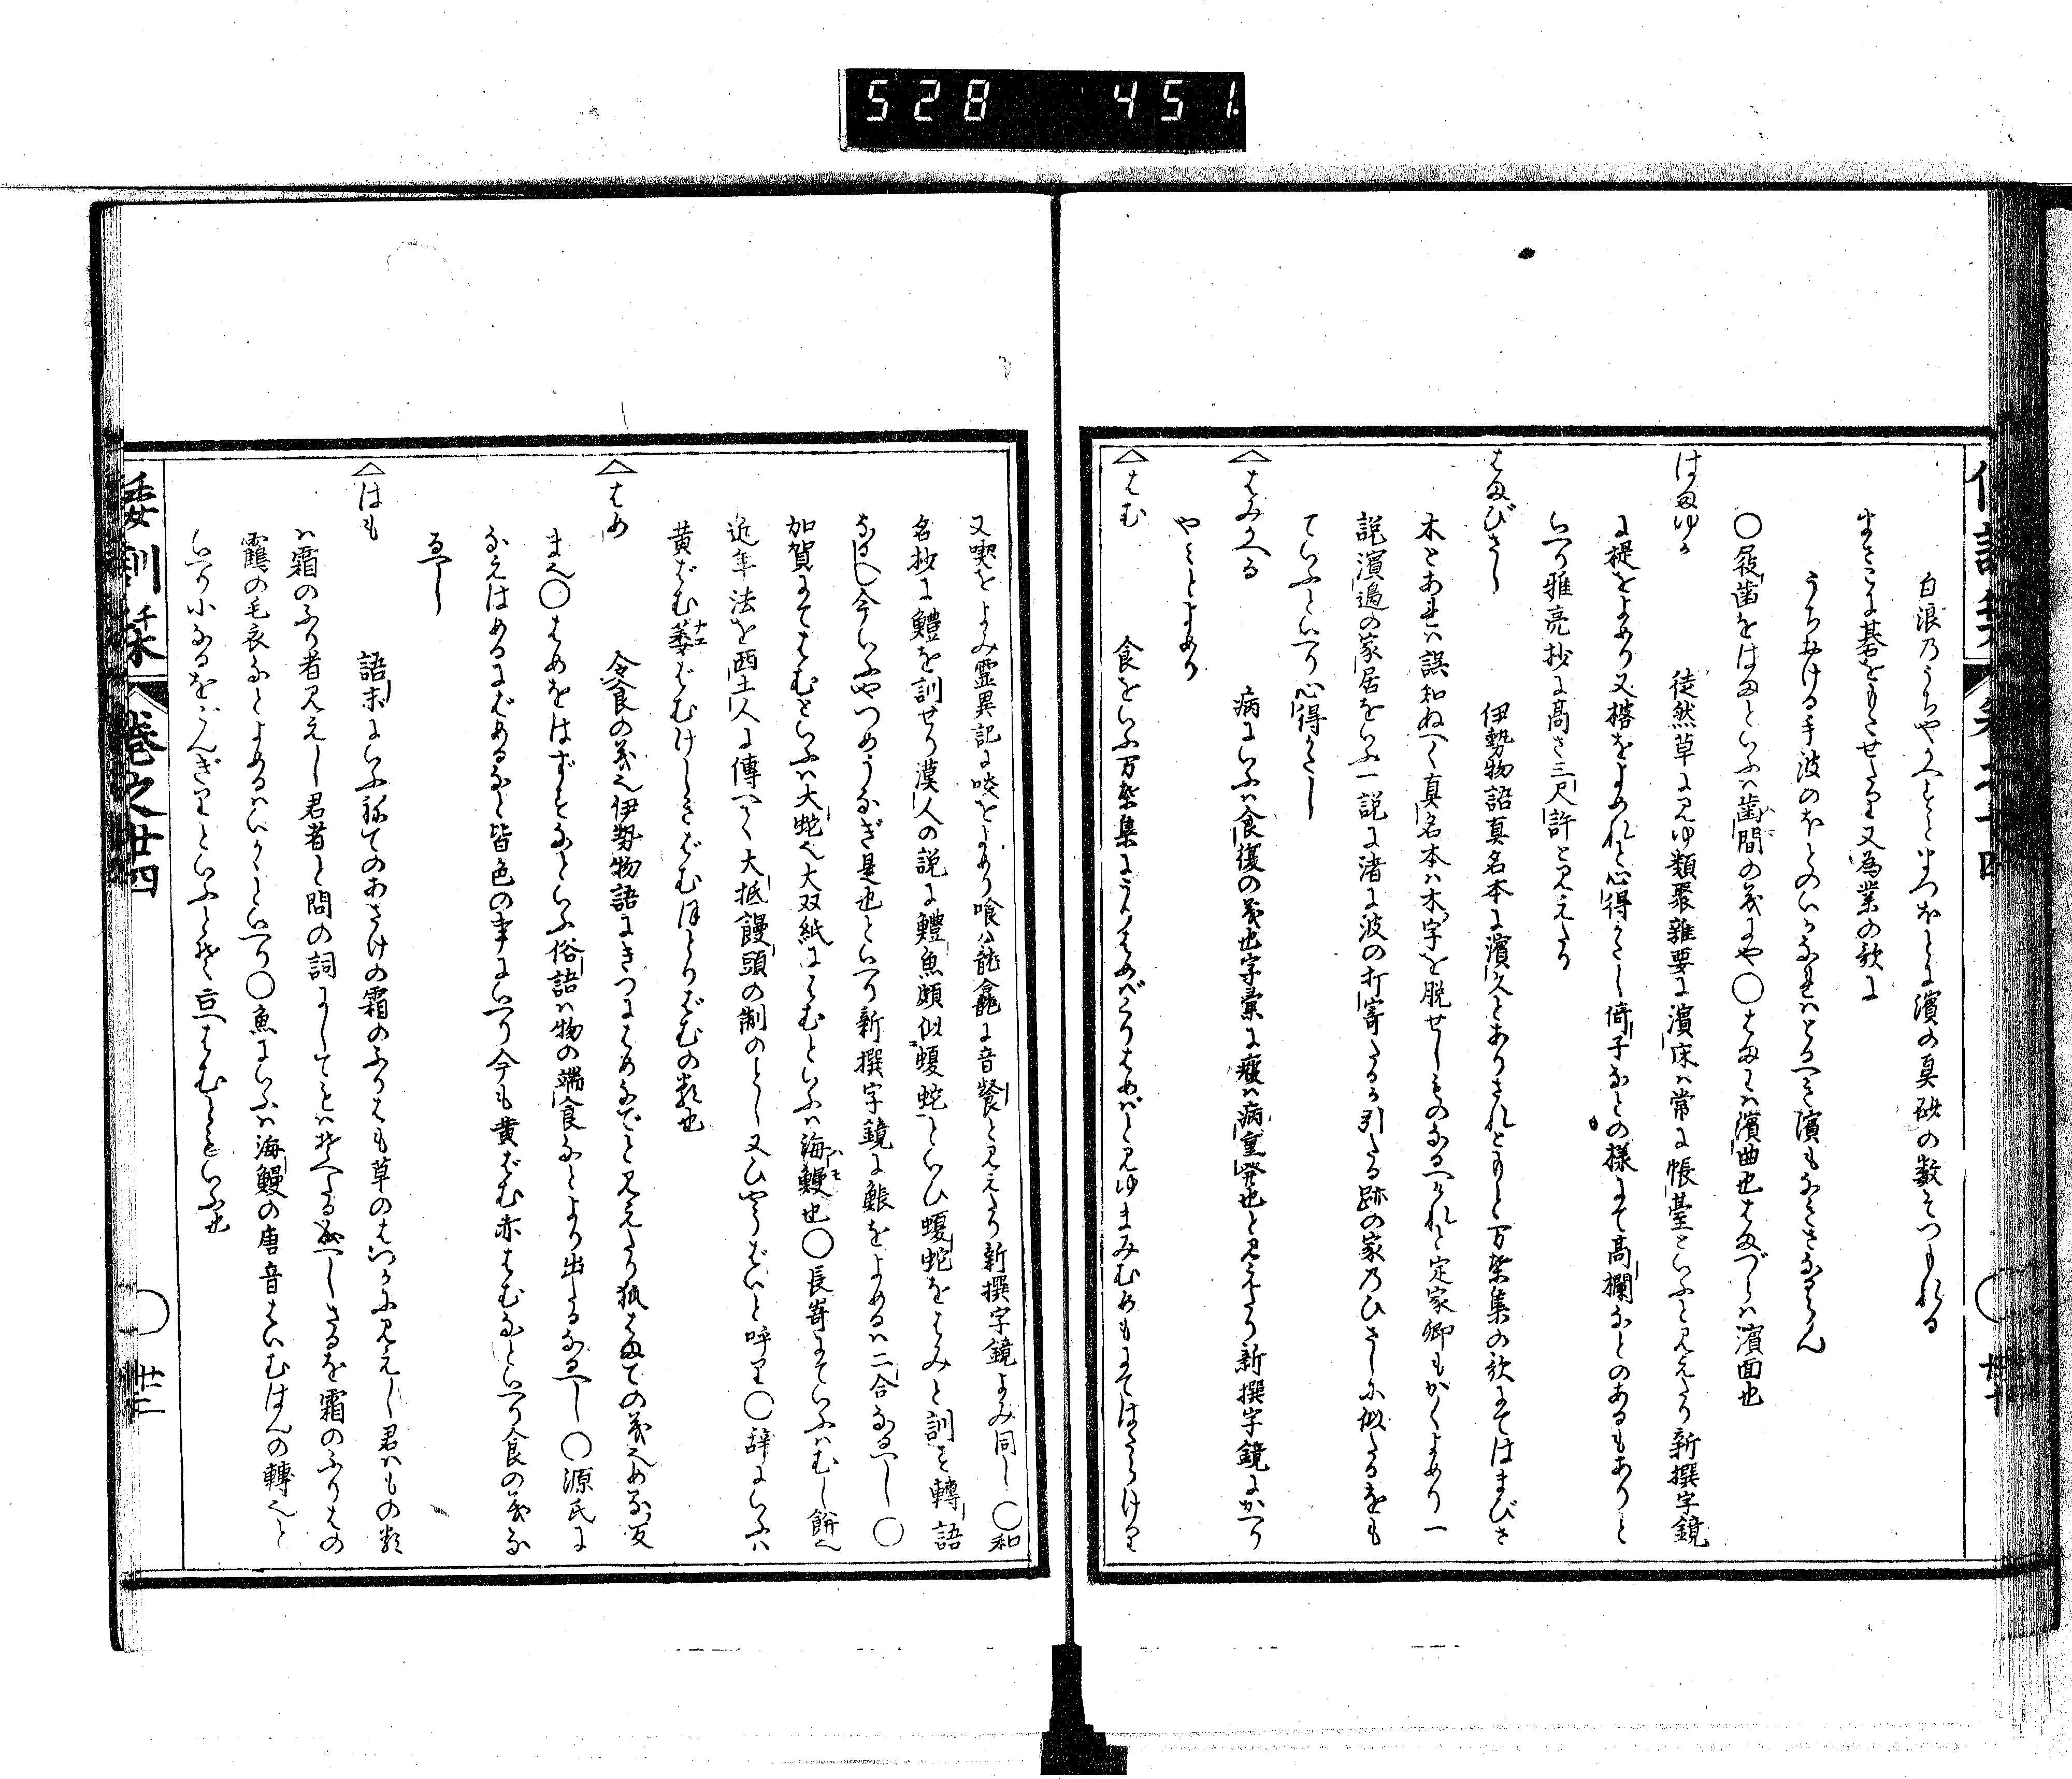 528 451
白浪乃うちやかへすとまつほとに濱の真砂の数そつもれる
まさこに碁をもたせたり又為業の歌に
うちよける手波のほとのいかなれはとるへき濱もなきさなるらん
〇屐歯をはまといふハ歯間の義にや〇はまわハ濱曲也はまづらハ濱面也
はまゆか 徒然草に見ゆ類聚雜要に濱床ハ常に帳臺といふと見えたり新撰字鏡
に榥をよめり又榰をよめれと心得かたし倚子なとの樣にて髙欄なとのあるもありと
いへり雅亮抄に髙さ三尺許と見えたり
はまびさし 伊勢物語真名本に濱久とありされともと万葉集の歌にてはまびさ
木とあれハ誤知ぬへく真名本ハ木字を脱せしものなるへけれと定家卿もかくよめり一
説濱邉の家居をいふ一説に渚に波の打寄たるか引たる跡の家乃ひさしに似たるをも
ていふといへり心得かたし
△はみかへる 病にいふハ食復の義也字彙に㾱ハ病重発也と見えたり新撰字鏡にかへり
やミとよめり
△はむ 食をいふ万葉集にうりはめバくりはめバと見ゆまみむめもにてはたらけり
又喫をよみ霊異記に啖をよめり喰ハ龍龕に音餐と見えたり新撰字鏡よみ同し〇和
名抄に鱧を訓せり漢人の説に鱧魚頗似蝮蛇といひ蝮蛇をはみと訓を轉語
なるへし今いふやつめうなぎ是也といへり新撰字鏡に鮼をよめるハ二合なるへし〇
加賀にてはむといふハ大蛇也大双紙にはむといふハ海鰻也〇長嵜にていふハむし餅也
近年法を西土人に傳へて大抵饅頭の制のとし又ひやうばいと呼り〇辞にいふハ
黄ばむ萎ばむけしきばむほとりばむの類也
△はめ 令食の義也伊勢物語にきつにはめなでと見えたり狐はめての義也め反
ま也〇はめをはずすなといふ俗語ハ物の端食なとより出たるなるへし〇源氏に
なえはめるにばめるなと皆色の事にいへり今も黄ばむ赤はむなといへり食の義な
るへし
△はも 語末にいふ詠てのあさけの霜のふりはも草のはつかに見えし君ハもの類
ハ霜のふり者見えし君者と問の詞にしてミハ添へたる成へしさるを霜のふりはの
鶴の毛衣なとよめるハいかゝといへり〇魚にいふハ海鰻の唐音はいむはんの轉也と
いへり小なるをごんぎりといふと云はむともいふ也
倭訓栞 巻之廿四 廿二